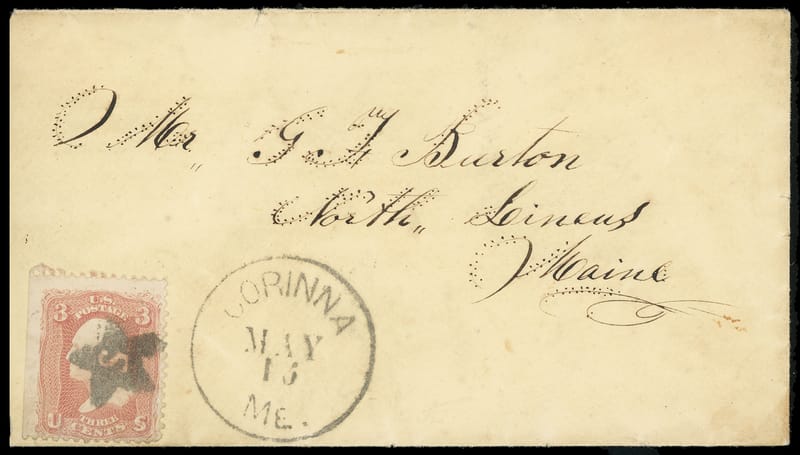 Mr,, G. F. Burton
North,, Lineus
Maine
CORINNA
MAY
15
ME.
U.S.
POSTAGE
3 3
S
U THREE S
CENTS